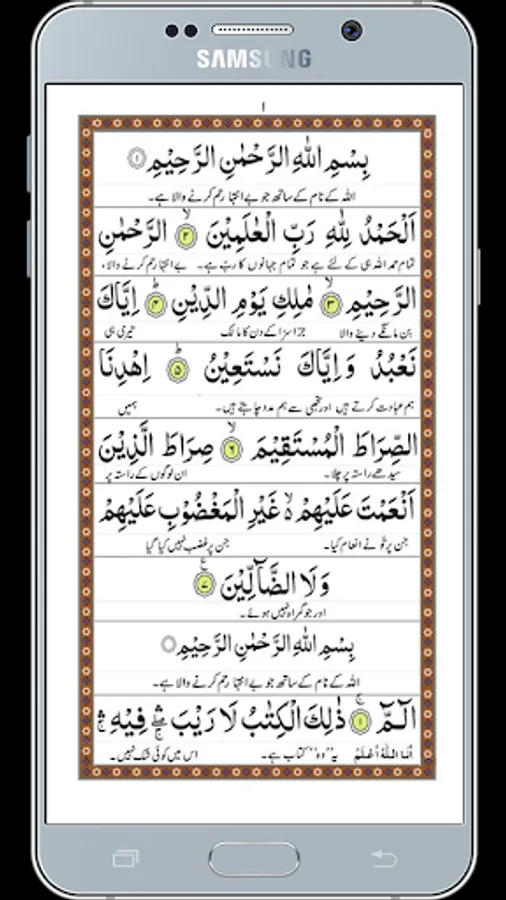 SAMSUNG
ا
بِسْمِ اللّٰهِ الرَّحْمٰنِ الرَّحِيْمِ ۝۱
اللہ کے نام کے ساتھ جو بے انتہا رحم کرنے والا ہے۔
اَلْحَمْدُ لِلّٰهِ رَبِّ الْعٰلَمِيْنَ ۙ۝۲ الرَّحْمٰنِ
تمام حمد اللہ ہی کے لئے ہے جو تمام جہانوں کا ربّ ہے۔ بے انتہا رحم کرنے والا،
الرَّحِيْمِ ۙ۝۳ مٰلِكِ يَوْمِ الدِّيْنِ ؕ۝۴ اِيَّاكَ
بن مانگے دینے والا جزا سزا کے دن کا مالک تیری ہی
نَعْبُدُ وَ اِيَّاكَ نَسْتَعِيْنُ ؕ۝۵ اِهْدِنَا
ہم عبادت کرتے ہیں اور تجھی سے ہم مدد چاہتے ہیں۔ ہمیں
الصِّرَاطَ الْمُسْتَقِيْمَ ۙ۝۶ صِرَاطَ الَّذِيْنَ
سیدھے راستہ پر چلا۔ ان لوگوں کے راستہ پر
اَنْعَمْتَ عَلَيْهِمْ ۙ۬ غَيْرِ الْمَغْضُوْبِ عَلَيْهِمْ
جن پر تُو نے انعام کیا۔ جن پر غضب نہیں کیا گیا
وَ لَا الضَّآلِّيْنَ ۝۷
اور جو گمراہ نہیں ہوئے۔
بِسْمِ اللّٰهِ الرَّحْمٰنِ الرَّحِيْمِ ۝
اللہ کے نام کے ساتھ جو بے انتہا رحم کرنے والا ہے۔
الٓـمّٓ ۚ۝۱ ذٰلِكَ الْكِتٰبُ لَا رَيْبَ ۛۚ فِيْهِ ۛۚ
اَنَا اللّٰهُ اَعْلَمُ یہ ”وہ“ کتاب ہے۔ اس میں کوئی شک نہیں۔